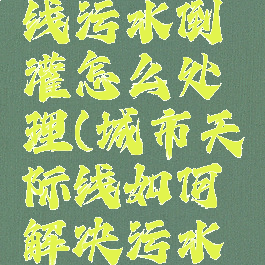 线污水倒
灌怎么处
理(城市天
际线如何
解决污水